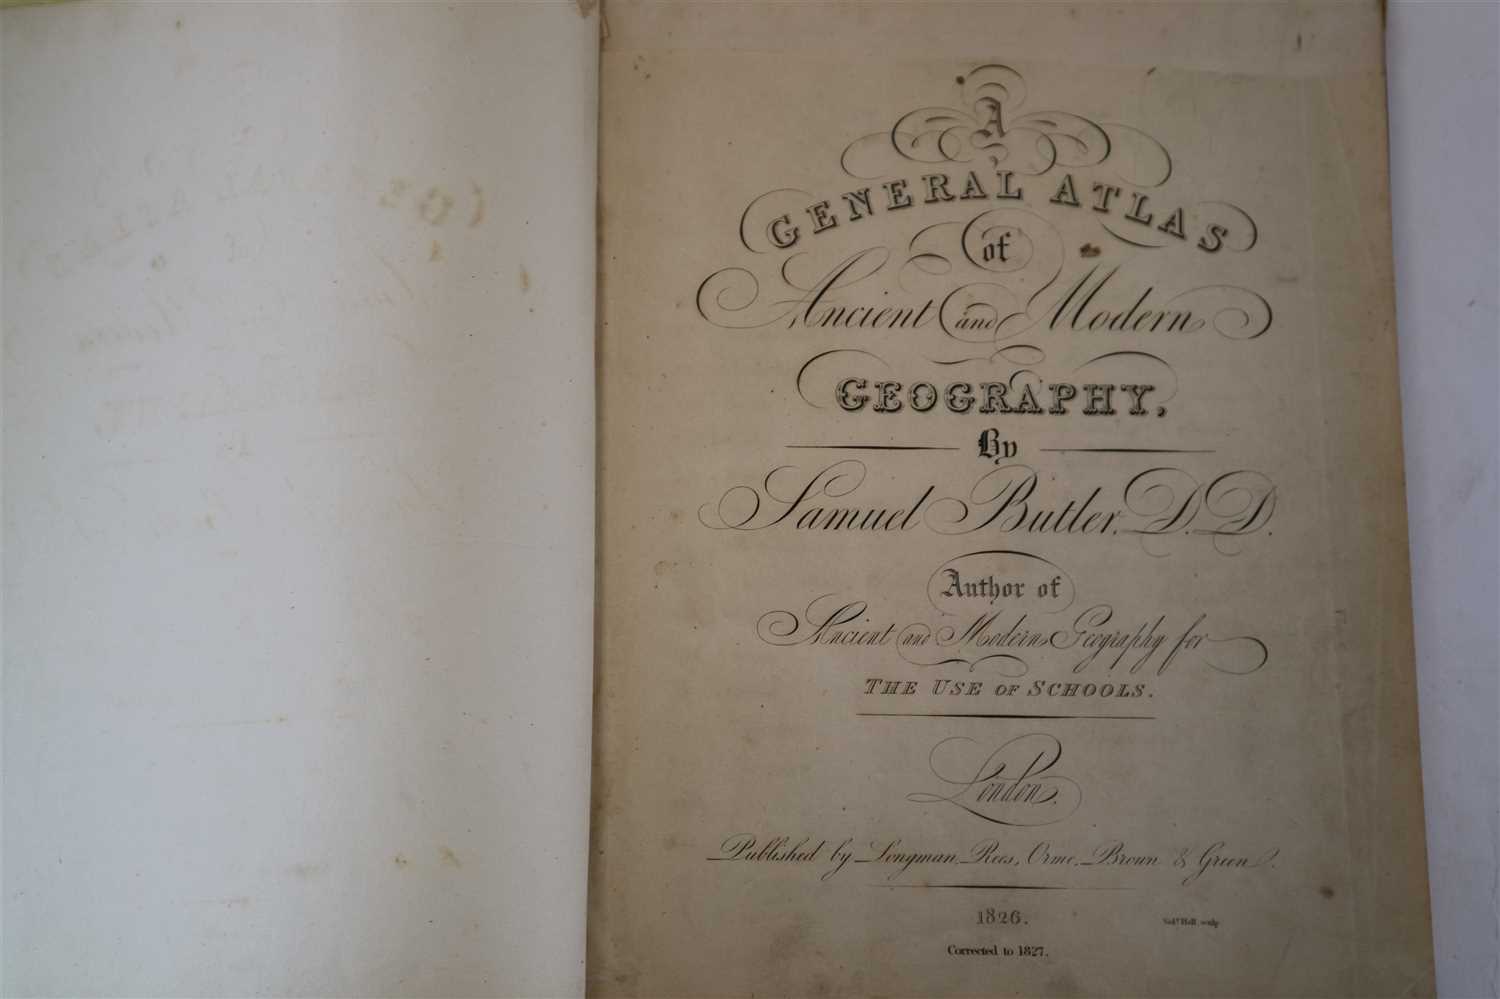 A
GENERAL ATLAS
of
Ancient and Modern
GEOGRAPHY,
By
Samuel Butler, D.D.
Author of
Ancient and Modern Geography for
THE USE OF SCHOOLS.
London.
Published by Longman, Rees, Orme, Brown & Green.
1826.
Sidy. Hall, sculp.
Corrected to 1827.